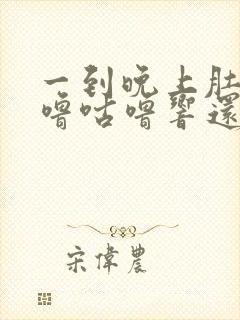 一到晚上肚
噜咕噜響還
宋偉農